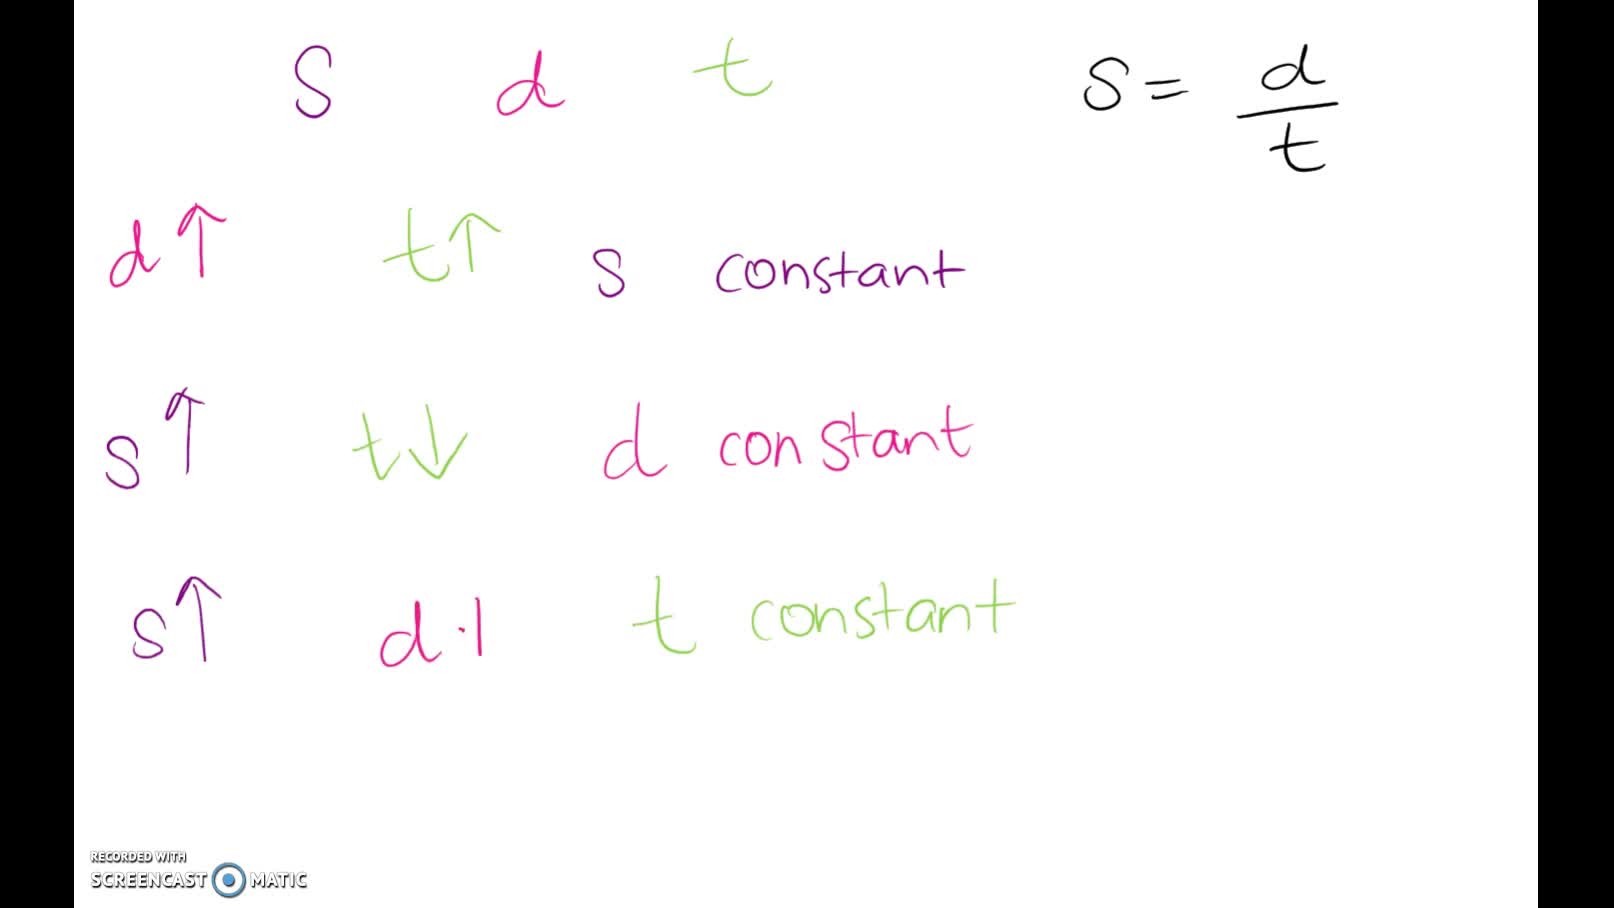 s d t s = d/t
d↑ t↑ s constant
s↑ t↓ d constant
s↑ d t constant
RECORDED WITH
SCREENCAST MATIC